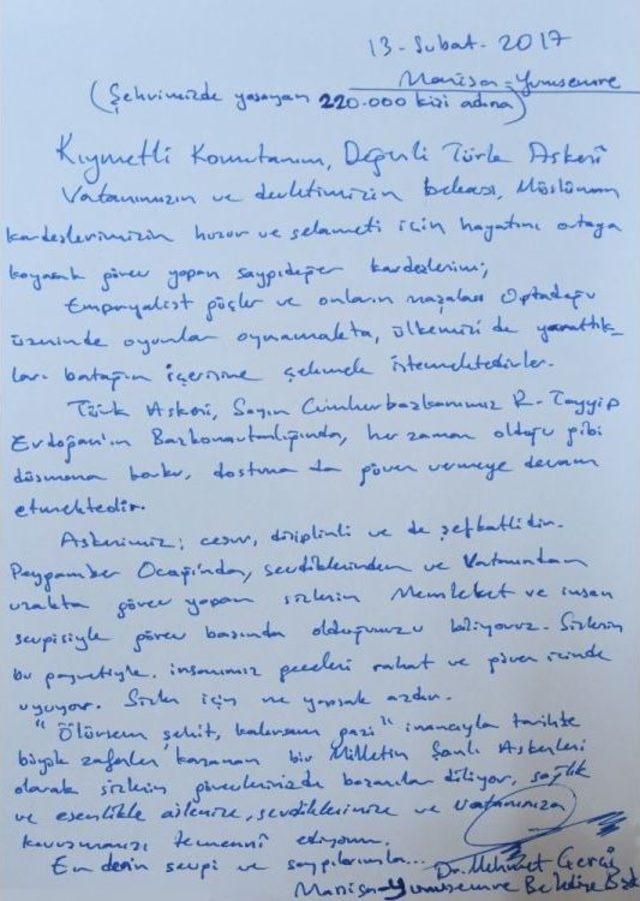 13 - Şubat - 2017
Manisa - Yunusemre
(Şehrimizde yaşayan 220.000 kişi adına)
Kıymetli Komutanım, Değerli Türk Askeri
Vatanımızın ve devletimizin bekası, Müslüman
kardeşlerimizin huzur ve selameti için hayatını ortaya
koyarak görev yapan saygıdeğer kardeşlerim;
Emperyalist güçler ve onların maşaları Ortadoğu
üzerinde oyunlar oynamakta, ülkemizi de yarattık-
ları batağın içerisine çekmek istemektedirler.
Türk Askeri, Sayın Cumhurbaşkanımız R. Tayyip
Erdoğan'ın Başkomutanlığında, her zaman olduğu gibi
düşmana korku, dostuna da güven vermeye devam
etmektedir.
Askerimiz; cesur, disiplinli ve de şefkatlidir.
Peygamber Ocağında, sevdiklerinden ve Vatanından
uzakta görev yapan sizlerin Memleket ve insan
sevgisiyle görev başında olduğunuzu biliyoruz. Sizlerin
bu gayretiyle, insanımız geceleri rahat ve güven içinde
uyuyor. Sizler için ne yapsak azdır.
"Ölürsem şehit, kalırsam gazi" inancıyla tarihte
büyük zaferler kazanan bir Milletin Şanlı Askerleri
olarak sizlerin görevlerinizde başarılar diliyor, sağlık
ve esenlikle ailenize, sevdiklerinize ve Vatanımıza
kavuşmanızı temenni ediyorum.
En derin sevgi ve saygılarımla...
Dr. Mehmet Çerçi
Manisa - Yunusemre Belediye Bşk